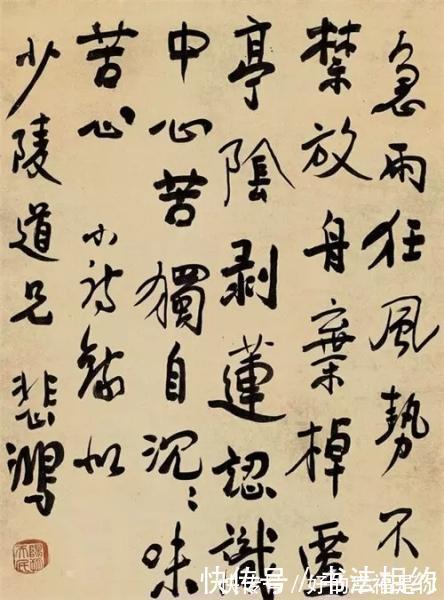 急雨狂風勢不
禁放舟棄棹
亭陰剥蓮認識
中心苦獨自沉〻味
苦心 小詩錄似
少陵道兄 悲鴻
快传号/书法相约